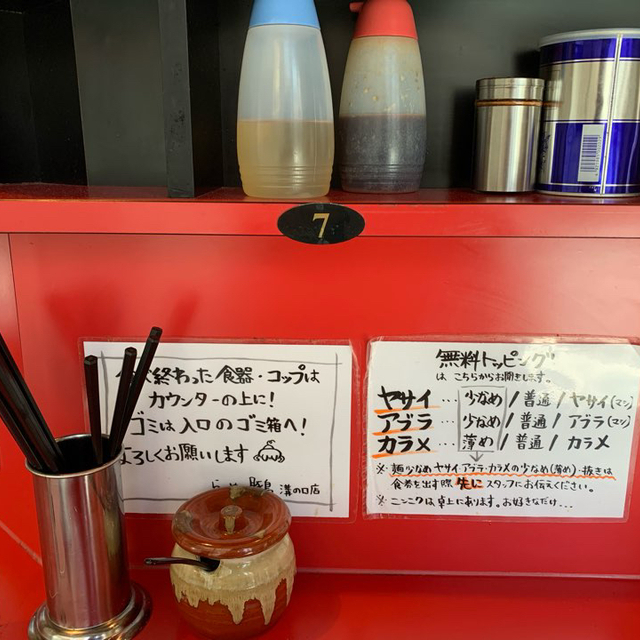 7
終わった食器・コップは
カウンターの上に!
ゴミは入口のゴミ箱へ!
よろしくお願いします
溝の口店
無料トッピング
は こちらからお聞きします。
ヤサイ…少なめ/普通/ヤサイ(マシ)
アブラ…少なめ/普通/アブラ(マシ)
カラメ…薄め/普通/カラメ
※麺少なめ ヤサイ・アブラ・カラメの少なめ(薄め)・抜きは
食券を出す際 先に スタッフにお伝えください。
※ニンニクは卓上にあります。お好きなだけ…